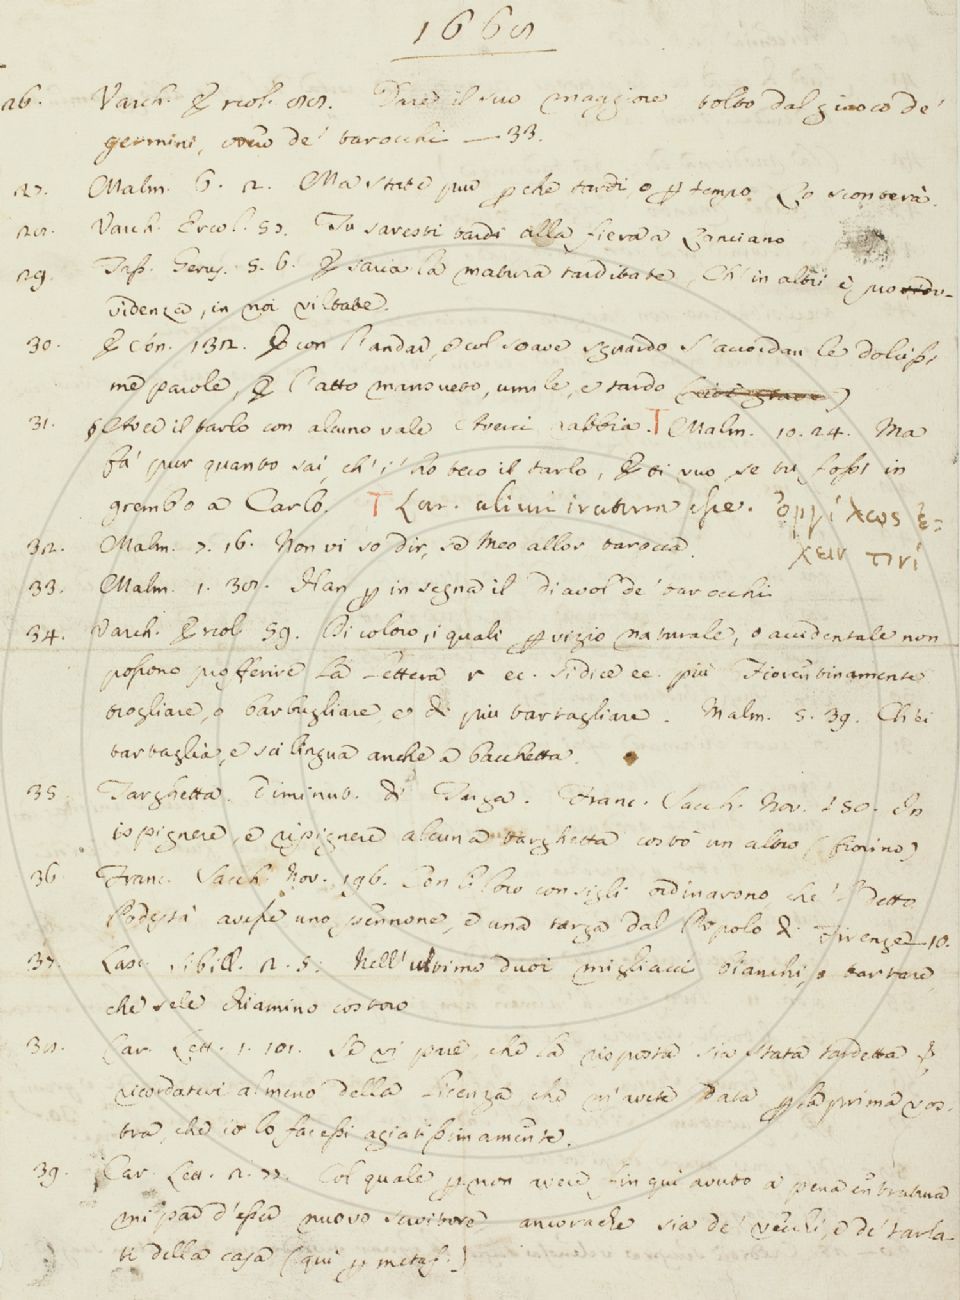 1668
26. Varch. Ercol. 88. Fared il suo maggiore tolto dal giuoco de'
germini, ovvero de' tarocchi — 33.
27. Malm. 6. 2. Ma state pur p che tardi, o p tempo Lo sconterà.
28. Varch. Ercol. 57. Tu saresti tardi alla fiera a Lanciano
29. Tass. Gerus. 5. 6. E saria la matura tarditate, Ch' in altri è pro
videnza, in noi viltate.
30. E con. 132. E con l'andar, e col soave sguardo S'accordan le dolcissi
me parole, E l'atto mansueto, umile, e tardo
31. Aver il tarlo con alcuno vale Averci rabbia. T Malm. 10. 24. Ma
fa' pur quanto sai, ch' i' ho teco il tarlo, E ti vuo, se tu fossi in
grembo a Carlo. T Lat. alicui iratum esse. ὀργίλως ἔ-
χειν τινί
32. Malm. 7. 16. Non vi so dir, se Meo allor tarocca.
33. Malm. 1. 38. Han p insegna il Diavol de' tarocchi
34. Varch. Ercol. 59. Di coloro, i quali p vizio naturale, o accidentale non
possono profferire la lettera r ec. si dice ec. più Fiorentinamente
trogliare, o barbugliare, e di più tartagliare. Malm. 5. 39. Ch' ei
tartaglia, e scilingua anche a bacchetta.
35. Targhetta. Diminut. di Targa. Franc. Sacch. Nov. 150. In
ispignere, e rispignere alcuna targhetta costò un altro (fiorino)
36. Franc. Sacch. Nov. 196. Con li loro consigli ordinarono, che 'l detto
Podestà avesse uno pennone, e una targa dal Popolo di Firenze — 10.
37. Lasc. Sibill. 2. 5. Nell'ultimo duoi migliacci bianchi, o tartare,
che se le chiamino costoro
38. Car. Lett. 1. 101. Se vi pare, che la risposta sia stata tardetta
ricordatevi almeno della licenza, che m'avete data p la prima vos-
tra, che io lo facessi agiatissimamente.
39. Car. Lett. 2. 77. Col quale p non avere fin qui avuto a pena entratura
mi par d'esser nuovo servitore ancorache sia de' vecchi, e de' tarla-
ti della casa (qui p metaf.)